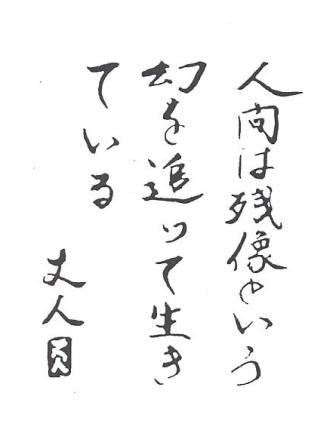 人間は残像という
幻を追って生き
ている
丈人